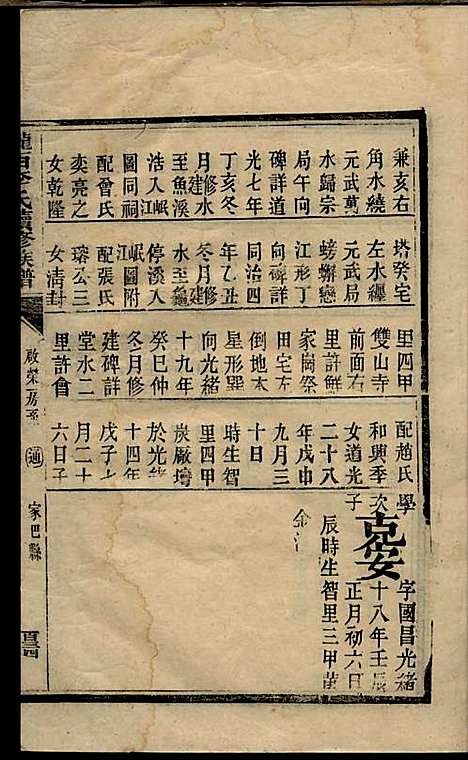 兼亥右
角水繞
元武萬
水歸宗
局午向
碑詳道
光七年
丁亥冬
月修水
至魚溪
浩入岷江
圖同祠
配曾氏
奕亮之
女乾隆
塔癸宅
左水纏
元武局
螃蠏戀
江形丁
向碑詳
同治四
年乙丑
冬月建修
水至魚
停溪入
岷江圖附
配張氏
瑢公三
女清封
里四甲
雙山寺
前面右
里許鮮
家崗祭
田宅左
倒地木
星形巽
向光緒
十九年
癸巳仲
冬月修
建碑詳
堂水二
里許會
配趙氏學
和興季次
女道光子
二十八
年戊申
九月三
十日
時生智
里四甲
炭厰塆
於光緒
十四年
戊子七
月二十
六日子
克安
字國昌光緒
十八年壬辰
正月初六日
辰時生智里三甲苗
金
隴西李氏續修族譜
啟榮房系
通
家巴縣